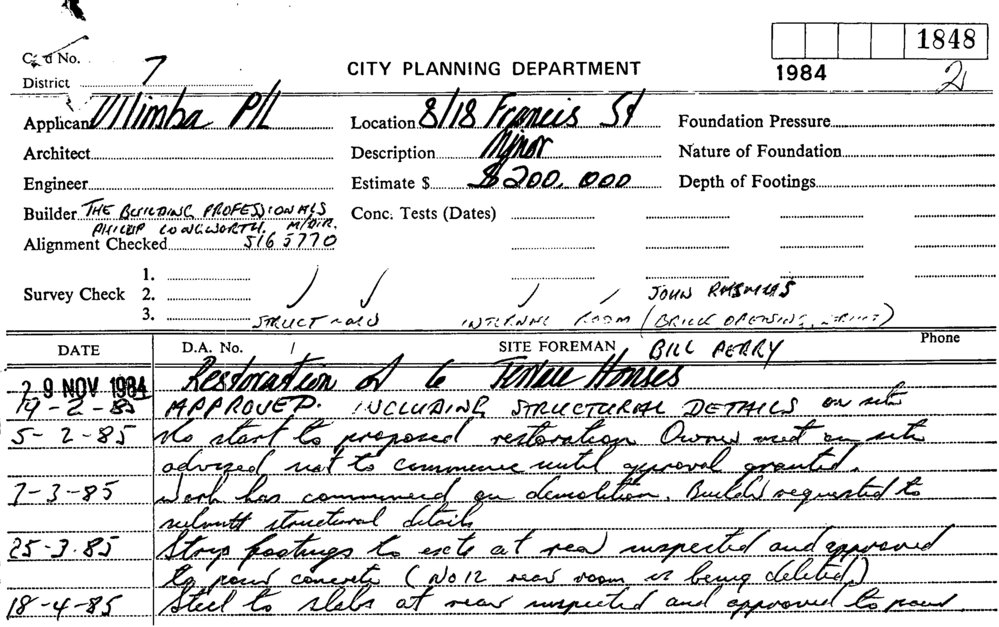 1848
C d No.
District 7
CITY PLANNING DEPARTMENT
1984
2
Applicant Ulimba P/L
Location 8/18 Francis St
Foundation Pressure
Architect
Description Minor
Nature of Foundation
Engineer
Estimate $ $200,000
Depth of Footings
Builder THE BUILDING PROFESSIONALS
PHILIP LONGWORTH. M/DIR.
Conc. Tests (Dates)
Alignment Checked 5165770
1.
Survey Check 2.
3.
JOHN
STRUCT INTERNAL ROOM (BRICK OPENING,
DATE
D.A. No.
SITE FOREMAN BILL PERRY
Phone
29 NOV 1984 Restoration of 6 Terrace Houses
19-2-85 APPROVED. INCLUDING STRUCTURAL DETAILS on site
5-2-85 No start to proposed restoration Owner met on site
advised not to commence until approval granted.
7-3-85 Work has commenced on demolition. Builder requested to
submit structural details
25-3-85 Strip footings to extn at rear inspected and approved
to pour concrete (No 12 rear room is being deleted)
18-4-85 Steel to slabs at rear inspected and approved to pour.